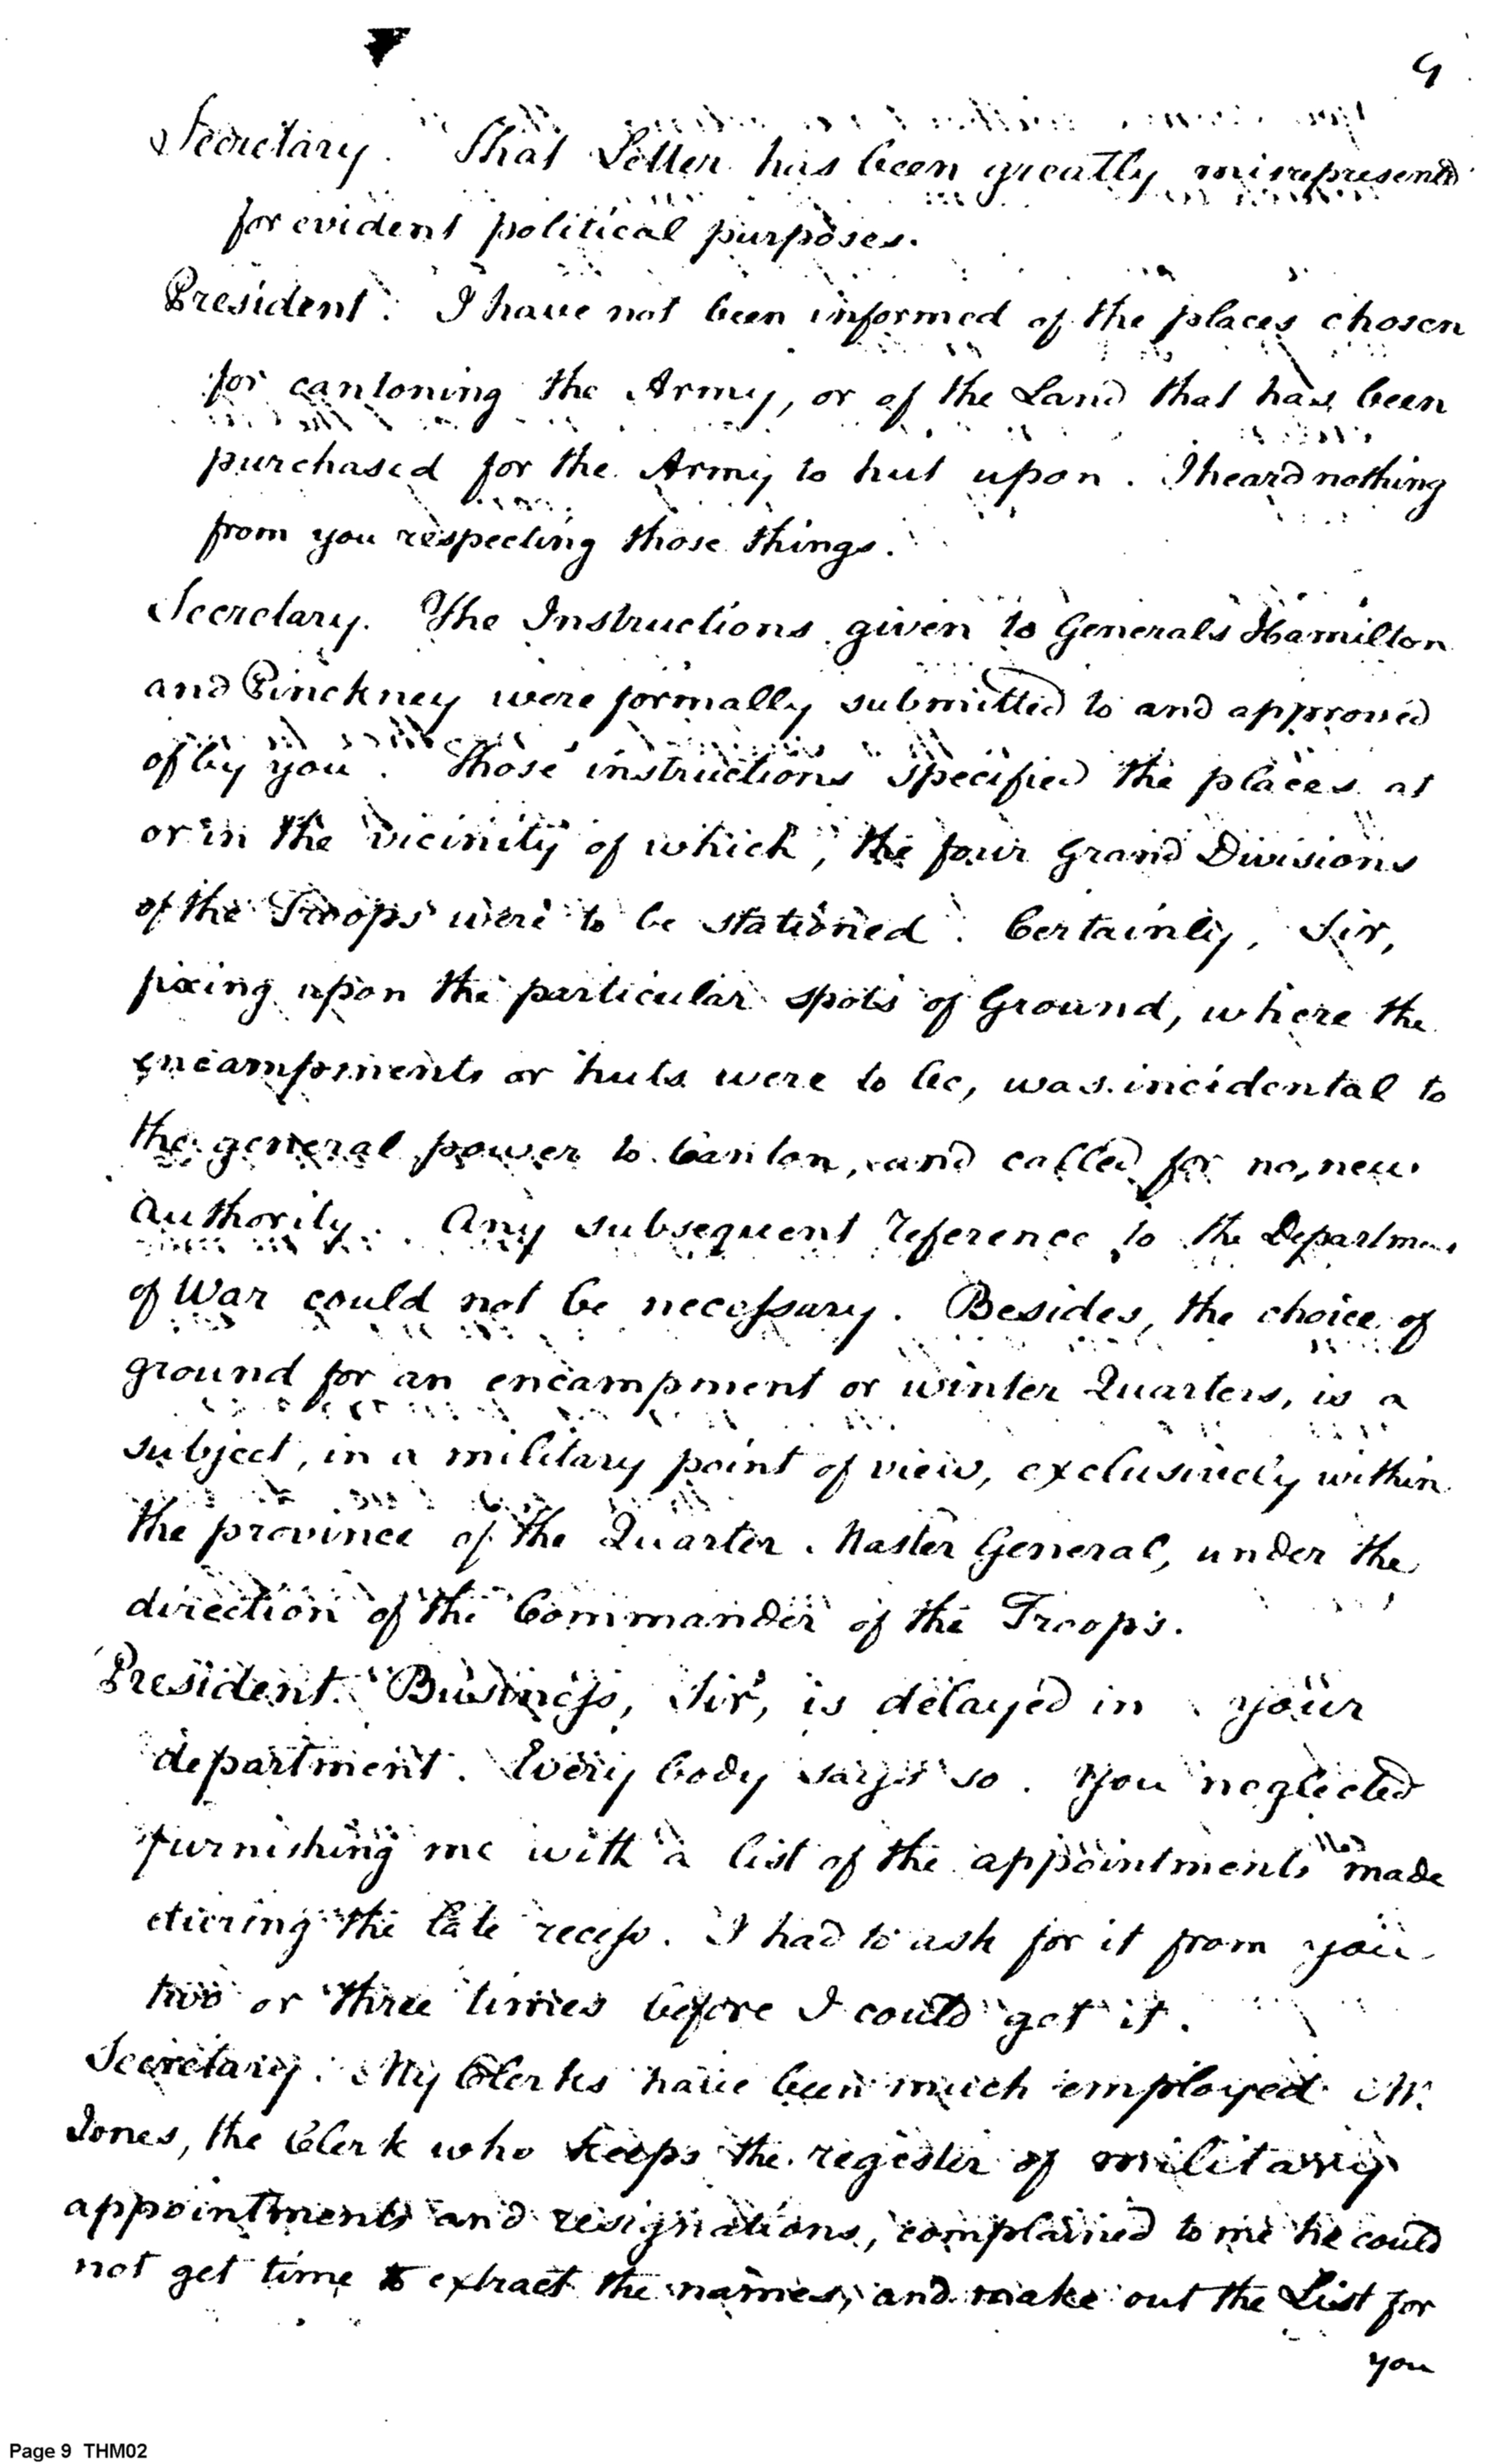 9
Secretary. That Letter has been greatly misrepresented
for evident political purposes.
President. I have not been informed of the places chosen
for cantoning the Army, or of the Land that has been
purchased for the Army to hut upon. I heard nothing
from you respecting those things.
Secretary. The Instructions given to Generals Hamilton
and Pinckney were formally submitted to and approved
of by you. Those instructions specified the places at
or in the vicinity of which, the four Grand Divisions
of the Troops were to be stationed. Certainly, Sir,
fixing upon the particular spots of Ground, where the
encampments or huts were to be, was incidental to
the general power to Canton, and called for no new
authority. Any subsequent reference to the Department
of War could not be necessary. Besides, the choice of
ground for an encampment or winter Quarters, is a
subject, in a military point of view, exclusively within
the province of the Quarter Master General, under the
direction of the Commander of the Troops.
President. Business, Sir, is delayed in your
department. Every body says so. You neglected
furnishing me with a list of the appointments made
during the late recess. I had to ask for it from you
two or three times before I could get it.
Secretary. My Clerks have been much employed. Mr.
Jones, the Clerk who keeps the register of military
appointments and resignations, complained to me he could
not get time to extract the names, and make out the List for
you
Page 9 THM02